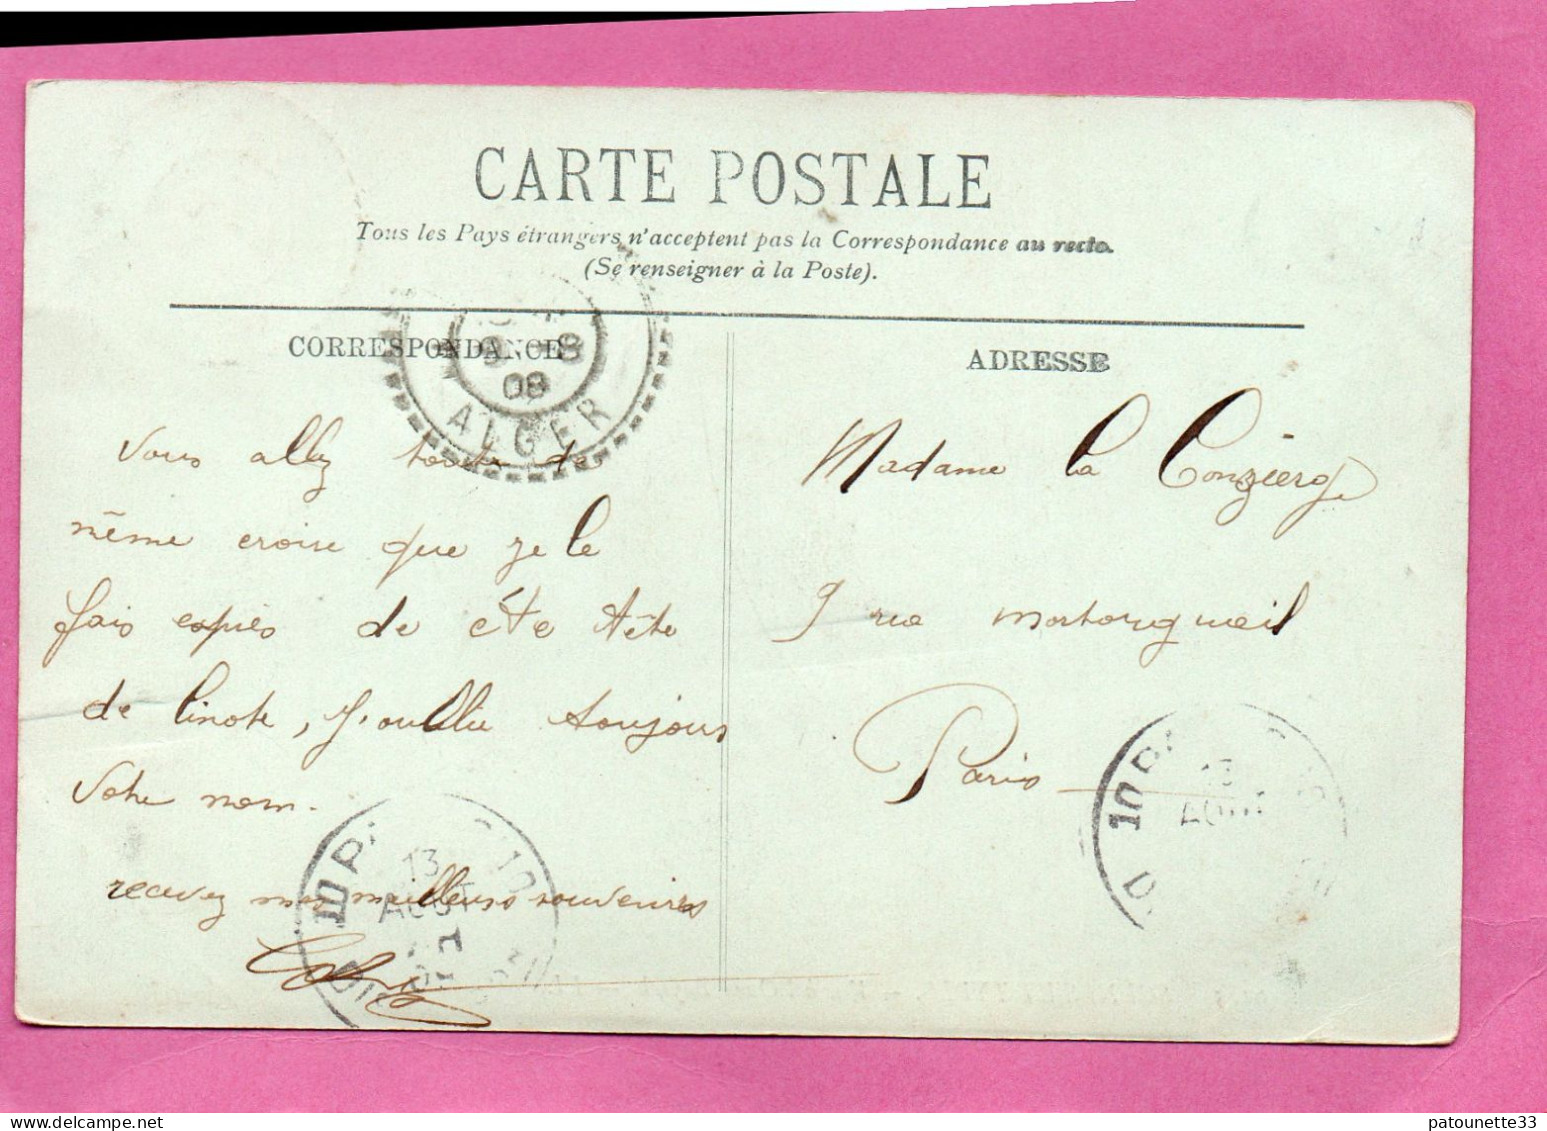 CARTE POSTALE
Tous les Pays étrangers n'acceptent pas la Correspondance au recto.
(Se renseigner à la Poste).
CORRESPONDANCE
ADRESSE
9 8
08
ALGER
Vous allez toute de
même croire que je le
fais esprès de cète tète
de linote, j'oublie toujours
votre nom.
recevez mes meilleurs souvenirs
Madame la Conzièrge
9 rue
Paris
13
AOUT
13
AOUT
patounette33